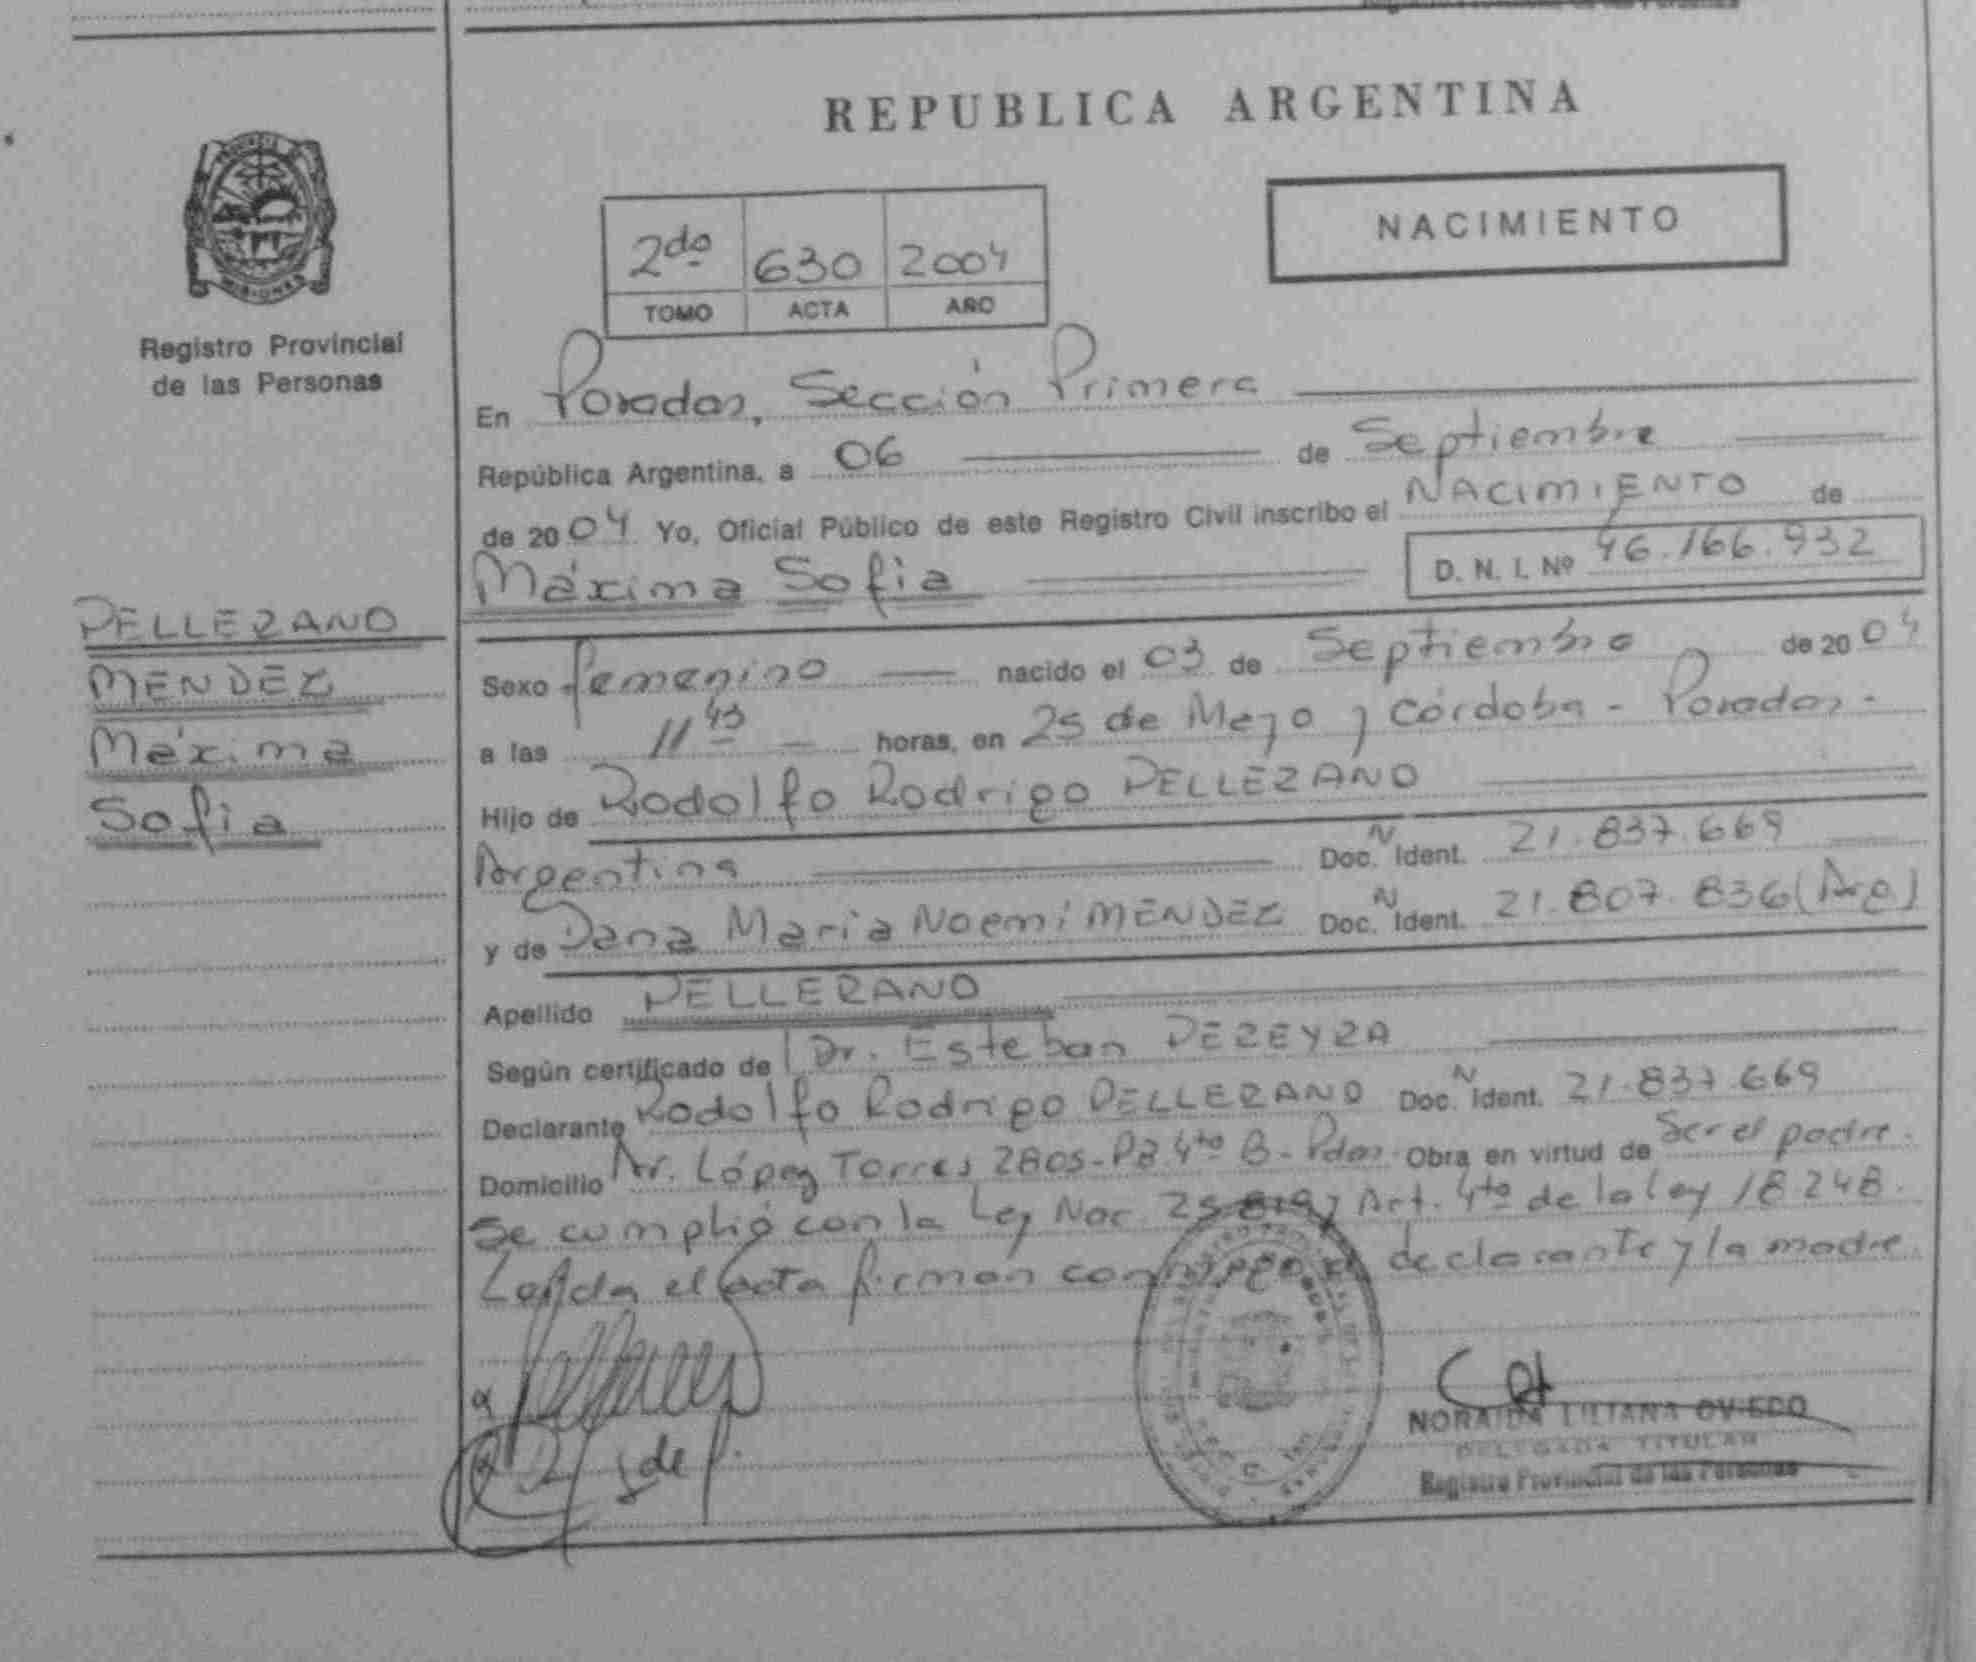 REPUBLICA ARGENTINA
NACIMIENTO
2do 630 2004
TOMO ACTA AÑO
MISIONES
Registro Provincial
de las Personas
En Posadas, Sección Primera
República Argentina, a 06 de Septiembre
de 2004 Yo, Oficial Público de este Registro Civil inscribo el NACIMIENTO de
Máxima Sofia D. N. I. Nº 46.166.932
PELLERANO
MENDEZ
Máxima
Sofia
Sexo femenino nacido el 03 de Septiembre de 2004
a las 11 45 horas, en 25 de Mayo y Córdoba - Posadas -
Hijo de Rodolfo Rodrigo PELLERANO
Argentina Doc. N Ident. 21.837.669
y de Dana Maria Noemi MENDEZ Doc. N Ident. 21.807.836 (Arg)
Apellido PELLERANO
Según certificado de Dr. Esteban PEREYRA
Declarante Rodolfo Rodrigo PELLERANO Doc. N Ident. 21.837.669
Domicilio Av. López Torres 2805-PB 4to B - Pdas Obra en virtud de Ser el padre.
Se cumplió con la Ley Nac. y Art. 4to de la ley 18248.
Leída el acta firman conmigo el declarante y la madre.
NORAIDA LILIANA OVIEDO
DELEGADA TITULAR
Registro Provincial de las Personas